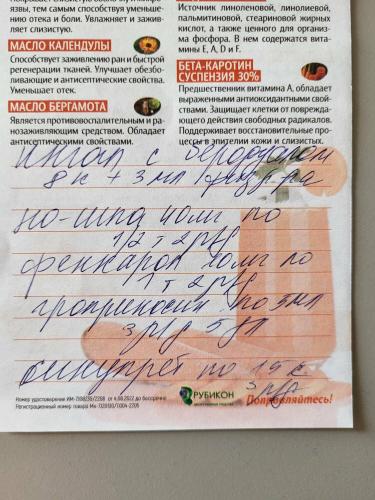 зы, тем самым способствуя уменьше-
нию отека и боли. Увлажняет и зажив-
ляет слизистую.
МАСЛО КАЛЕНДУЛЫ
Способствует заживлению ран и быстрой
регенерации тканей. Улучшает обезбо-
ливающие и антисептические свойства.
Уменьшает отек.
МАСЛО БЕРГАМОТА
Является противовоспалительным и ра-
нозаживляющим средством. Обладает
антисептическими свойствами.
Источник линоленовой, линолиевой,
пальмитиновой, стеариновой жирных
кислот, а также ценного для организ-
ма фосфора. В нем содержатся вита-
мины E, A, D и F.
БЕТА-КАРОТИН
СУСПЕНЗИЯ 30%
Предшественник витамина А, обладает
выраженными антиоксидантными свой-
ствами. Защищает клетки от поврежда-
ющего действия свободных радикалов.
Поддерживает восстановительные про-
цессы в эпителии кожи и слизистых.
ингал с беродуалом
8 к + 3 мл физ р-ра
но-шпа 40мг по
1/2 т 2 р/д
по
1 т 2 р/д
по 5 мл
3 р/д 5 д
синупрет по 15 к
3 р/д
РУБИКОН
Поправляйтесь!